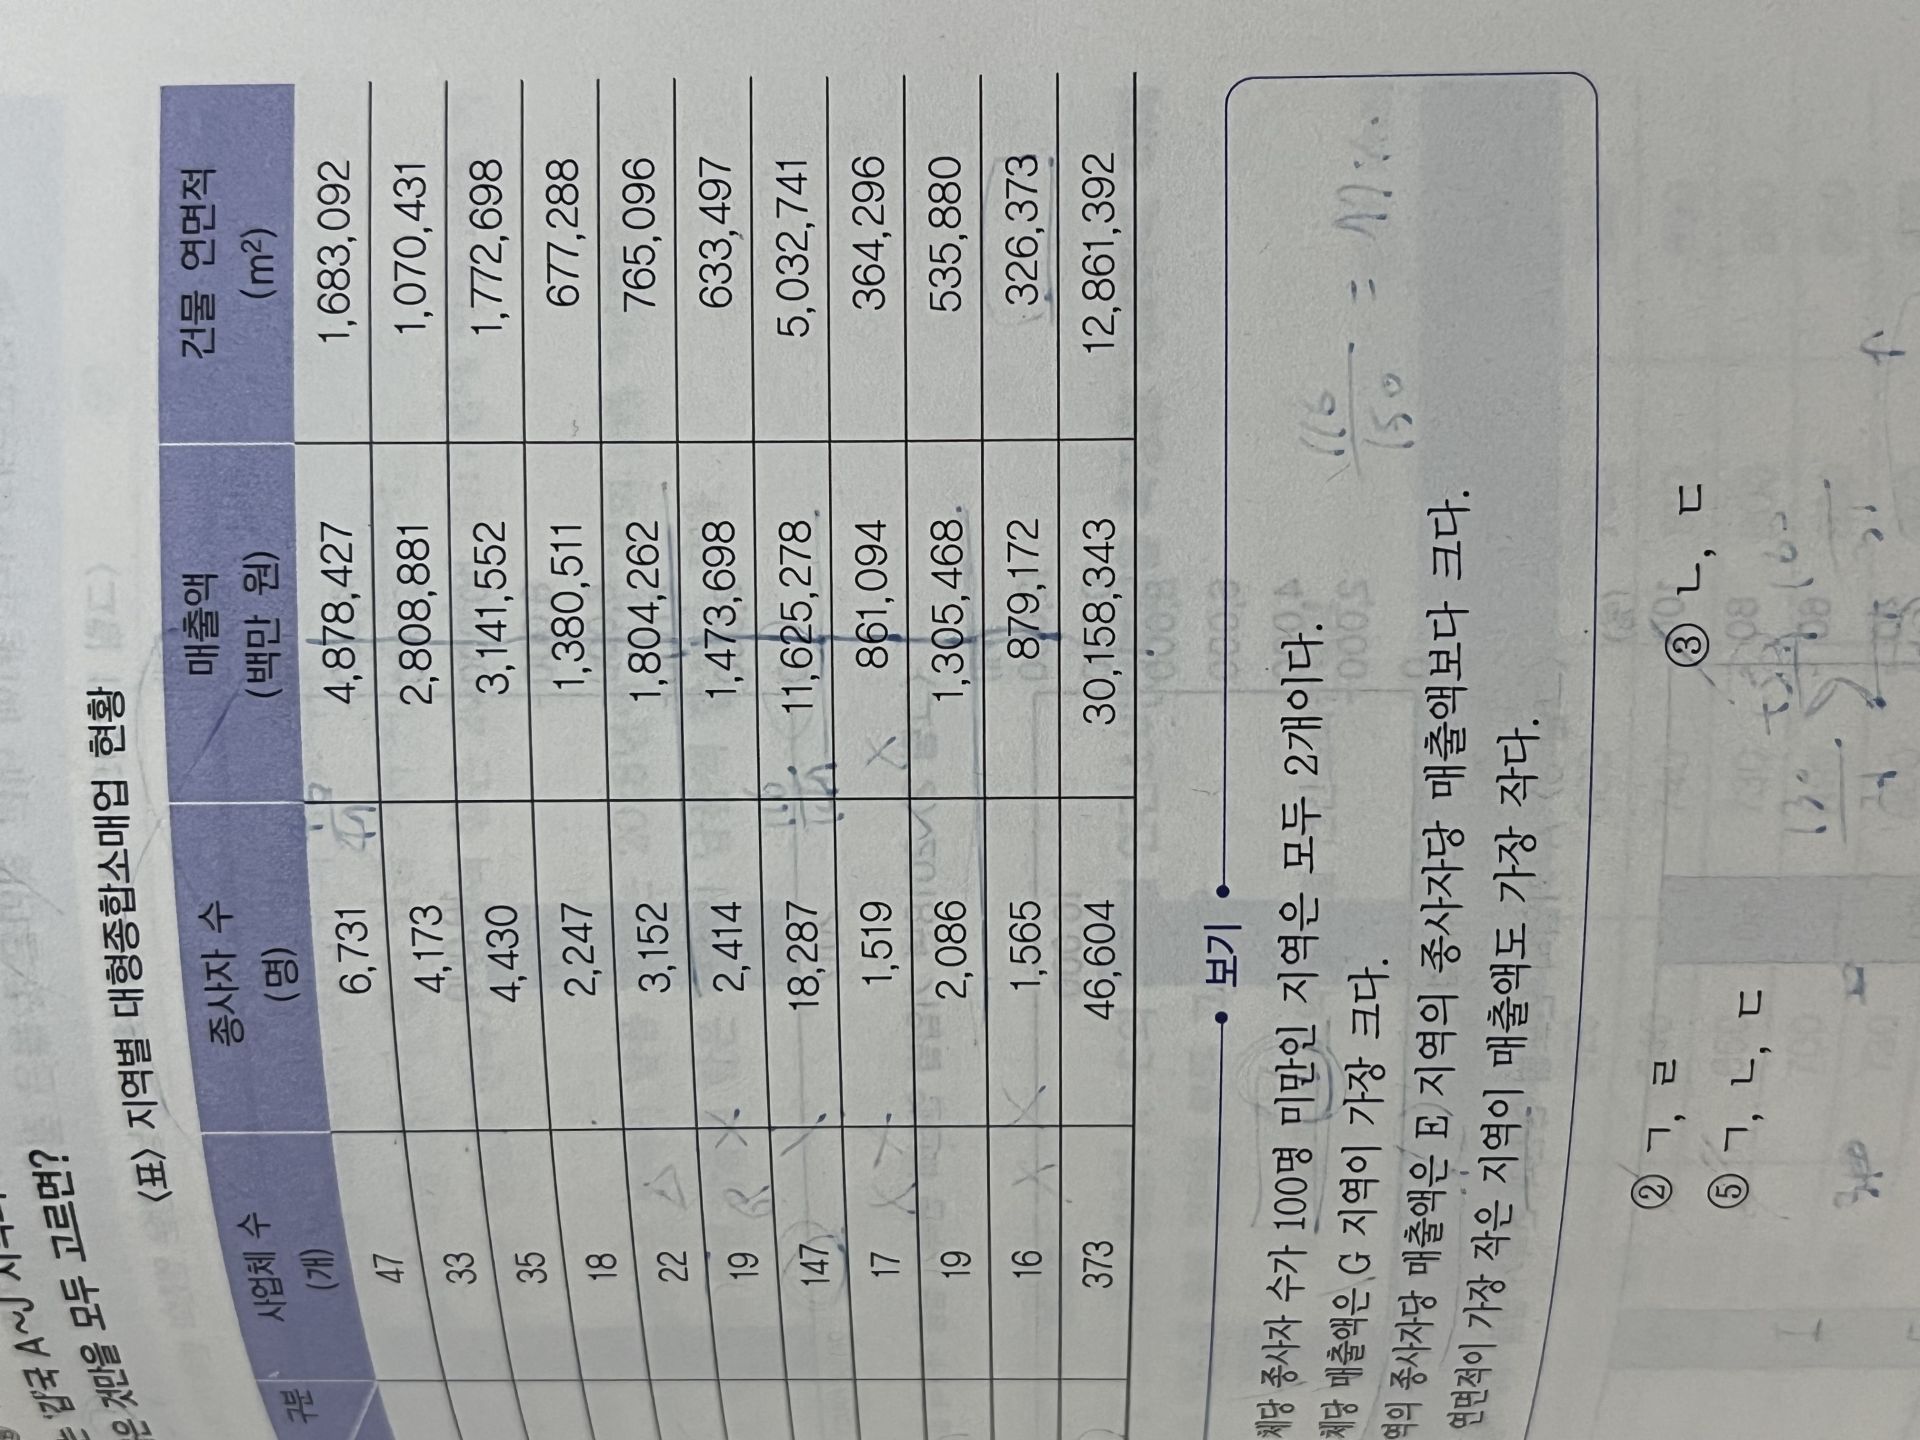 갑국 A~J
것만을 모두 고르면?
〈표〉 지역별 대형종합소매업 현황
구분 사업체 수 (개) 종사자 수 (명) 매출액 (백만 원) 건물 연면적 (m²)
47 6,731 4,878,427 1,683,092
33 4,173 2,808,881 1,070,431
35 4,430 3,141,552 1,772,698
18 2,247 1,380,511 677,288
22 3,152 1,804,262 765,096
19 2,414 1,473,698 633,497
147 18,287 11,625,278 5,032,741
17 1,519 861,094 364,296
19 2,086 1,305,468 535,880
16 1,565 879,172 326,373
373 46,604 30,158,343 12,861,392
보기
체당 종사자 수가 100명 미만인 지역은 모두 2개이다.
체당 매출액은 G 지역이 가장 크다.
역의 종사자당 매출액은 E 지역의 종사자당 매출액보다 크다.
연면적이 가장 작은 지역이 매출액도 가장 작다.
116
150
② ㄱ, ㄹ ③ ㄴ, ㄷ
⑤ ㄱ, ㄴ, ㄷ